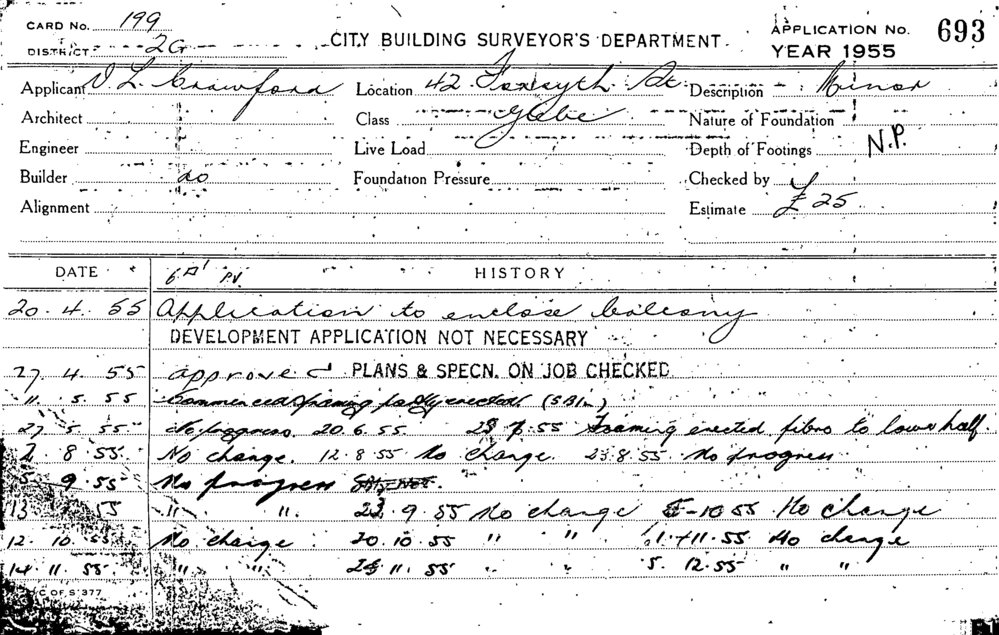 CARD No. 199
APPLICATION No. 693
DISTRICT 2G
CITY BUILDING SURVEYOR'S DEPARTMENT
YEAR 1955
Applicant V L Crawford Location 42 Forsyth St Description Minor
Architect Class Glebe Nature of Foundation
Engineer Live Load Depth of Footings N.P.
Builder do Foundation Pressure Checked by
Alignment Estimate £ 25
DATE HISTORY
20. 4. 55 Application to enclose balcony
DEVELOPMENT APPLICATION NOT NECESSARY
27. 4. 55 approved PLANS & SPECN. ON JOB CHECKED
11. 5. 55 Commenced framing partly erected
27 5 55 No progress. 20. 6. 55. 23 7 55 Framing erected fibro to lower half.
8 55 No change. 12. 8 55 No change. 23. 8. 55 No progress
9. 55 No progress
13 55 " " 23. 9. 55 No change 5-10 55 No change
12. 10. 55 No change 20. 10. 55 " " 1. 11. 55 No change
14. 11. 55 " " 23 11. 55 " " 5. 12. 55 " "
C OF S 377